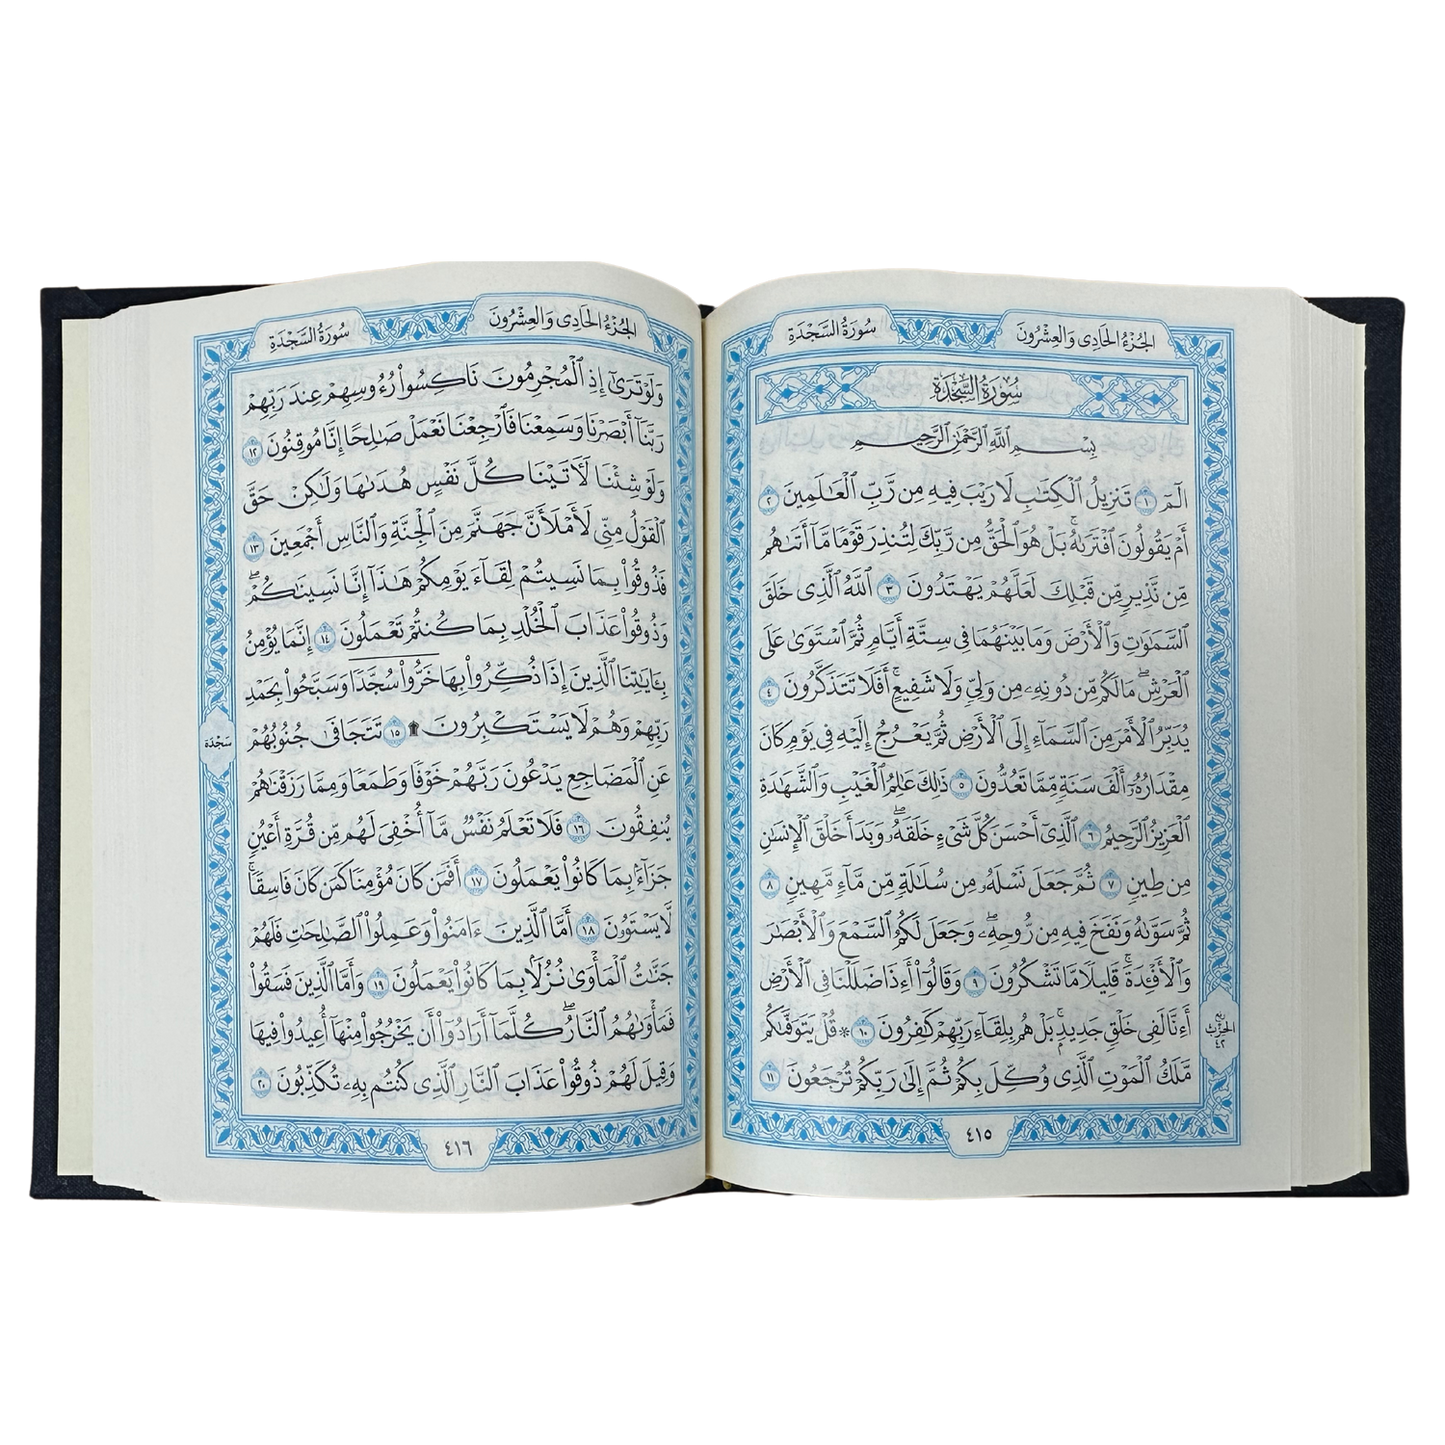 الجُزْءُ الحَادِي وَالعِشْرُونَ
سُورَةُ السَّجْدَةِ
سُورَةُ السَّجْدَةِ
بِسْمِ ٱللَّهِ ٱلرَّحْمَٰنِ ٱلرَّحِيمِ
الٓمٓ ١ تَنزِيلُ ٱلْكِتَٰبِ لَا رَيْبَ فِيهِ مِن رَّبِّ ٱلْعَٰلَمِينَ ٢
أَمْ يَقُولُونَ ٱفْتَرَىٰهُۚ بَلْ هُوَ ٱلْحَقُّ مِن رَّبِّكَ لِتُنذِرَ قَوْمًا مَّآ أَتَىٰهُم
مِّن نَّذِيرٍ مِّن قَبْلِكَ لَعَلَّهُمْ يَهْتَدُونَ ٣ ٱللَّهُ ٱلَّذِى خَلَقَ
ٱلسَّمَٰوَٰتِ وَٱلْأَرْضَ وَمَا بَيْنَهُمَا فِى سِتَّةِ أَيَّامٍ ثُمَّ ٱسْتَوَىٰ عَلَى
ٱلْعَرْشِۖ مَا لَكُم مِّن دُونِهِۦ مِن وَلِىٍّ وَلَا شَفِيعٍۚ أَفَلَا تَتَذَكَّرُونَ ٤
يُدَبِّرُ ٱلْأَمْرَ مِنَ ٱلسَّمَآءِ إِلَى ٱلْأَرْضِ ثُمَّ يَعْرُجُ إِلَيْهِ فِى يَوْمٍ كَانَ
مِقْدَارُهُۥٓ أَلْفَ سَنَةٍ مِّمَّا تَعُدُّونَ ٥ ذَٰلِكَ عَٰلِمُ ٱلْغَيْبِ وَٱلشَّهَٰدَةِ
ٱلْعَزِيزُ ٱلرَّحِيمُ ٦ ٱلَّذِىٓ أَحْسَنَ كُلَّ شَىْءٍ خَلَقَهُۥۖ وَبَدَأَ خَلْقَ ٱلْإِنسَٰنِ
مِن طِينٍ ٧ ثُمَّ جَعَلَ نَسْلَهُۥ مِن سُلَٰلَةٍ مِّن مَّآءٍ مَّهِينٍ ٨
ثُمَّ سَوَّىٰهُ وَنَفَخَ فِيهِ مِن رُّوحِهِۦۖ وَجَعَلَ لَكُمُ ٱلسَّمْعَ وَٱلْأَبْصَٰرَ
وَٱلْأَفْـِٔدَةَۚ قَلِيلًا مَّا تَشْكُرُونَ ٩ وَقَالُوٓا۟ أَءِذَا ضَلَلْنَا فِى ٱلْأَرْضِ
أَءِنَّا لَفِى خَلْقٍ جَدِيدٍۭۚ بَلْ هُم بِلِقَآءِ رَبِّهِمْ كَٰفِرُونَ ١٠ * قُلْ يَتَوَفَّىٰكُم
مَّلَكُ ٱلْمَوْتِ ٱلَّذِى وُكِّلَ بِكُمْ ثُمَّ إِلَىٰ رَبِّكُمْ تُرْجَعُونَ ١١
رُبع
الحِزْب
٤٢
٤١٥
الجُزْءُ الحَادِي وَالعِشْرُونَ
سُورَةُ السَّجْدَةِ
وَلَوْ تَرَىٰٓ إِذِ ٱلْمُجْرِمُونَ نَاكِسُوا۟ رُءُوسِهِمْ عِندَ رَبِّهِمْ
رَبَّنَآ أَبْصَرْنَا وَسَمِعْنَا فَٱرْجِعْنَا نَعْمَلْ صَٰلِحًا إِنَّا مُوقِنُونَ ١٢
وَلَوْ شِئْنَا لَـَٔاتَيْنَا كُلَّ نَفْسٍ هُدَىٰهَا وَلَٰكِنْ حَقَّ
ٱلْقَوْلُ مِنِّى لَأَمْلَأَنَّ جَهَنَّمَ مِنَ ٱلْجِنَّةِ وَٱلنَّاسِ أَجْمَعِينَ ١٣
فَذُوقُوا۟ بِمَا نَسِيتُمْ لِقَآءَ يَوْمِكُمْ هَٰذَآ إِنَّا نَسِينَٰكُمْۖ
وَذُوقُوا۟ عَذَابَ ٱلْخُلْدِ بِمَا كُنتُمْ تَعْمَلُونَ ١٤ إِنَّمَا يُؤْمِنُ
بِـَٔايَٰتِنَا ٱلَّذِينَ إِذَا ذُكِّرُوا۟ بِهَا خَرُّوا۟ سُجَّدًا وَسَبَّحُوا۟ بِحَمْدِ
رَبِّهِمْ وَهُمْ لَا يَسْتَكْبِرُونَ ۩ ١٥ تَتَجَافَىٰ جُنُوبُهُمْ
عَنِ ٱلْمَضَاجِعِ يَدْعُونَ رَبَّهُمْ خَوْفًا وَطَمَعًا وَمِمَّا رَزَقْنَٰهُمْ
يُنفِقُونَ ١٦ فَلَا تَعْلَمُ نَفْسٌ مَّآ أُخْفِىَ لَهُم مِّن قُرَّةِ أَعْيُنٍ
جَزَآءًۢ بِمَا كَانُوا۟ يَعْمَلُونَ ١٧ أَفَمَن كَانَ مُؤْمِنًا كَمَن كَانَ فَاسِقًاۚ
لَّا يَسْتَوُۥنَ ١٨ أَمَّا ٱلَّذِينَ ءَامَنُوا۟ وَعَمِلُوا۟ ٱلصَّٰلِحَٰتِ فَلَهُمْ
جَنَّٰتُ ٱلْمَأْوَىٰ نُزُلًۢا بِمَا كَانُوا۟ يَعْمَلُونَ ١٩ وَأَمَّا ٱلَّذِينَ فَسَقُوا۟
فَمَأْوَىٰهُمُ ٱلنَّارُۖ كُلَّمَآ أَرَادُوٓا۟ أَن يَخْرُجُوا۟ مِنْهَآ أُعِيدُوا۟ فِيهَا
وَقِيلَ لَهُمْ ذُوقُوا۟ عَذَابَ ٱلنَّارِ ٱلَّذِى كُنتُم بِهِۦ تُكَذِّبُونَ ٢٠
سَجْدَة
٤١٦